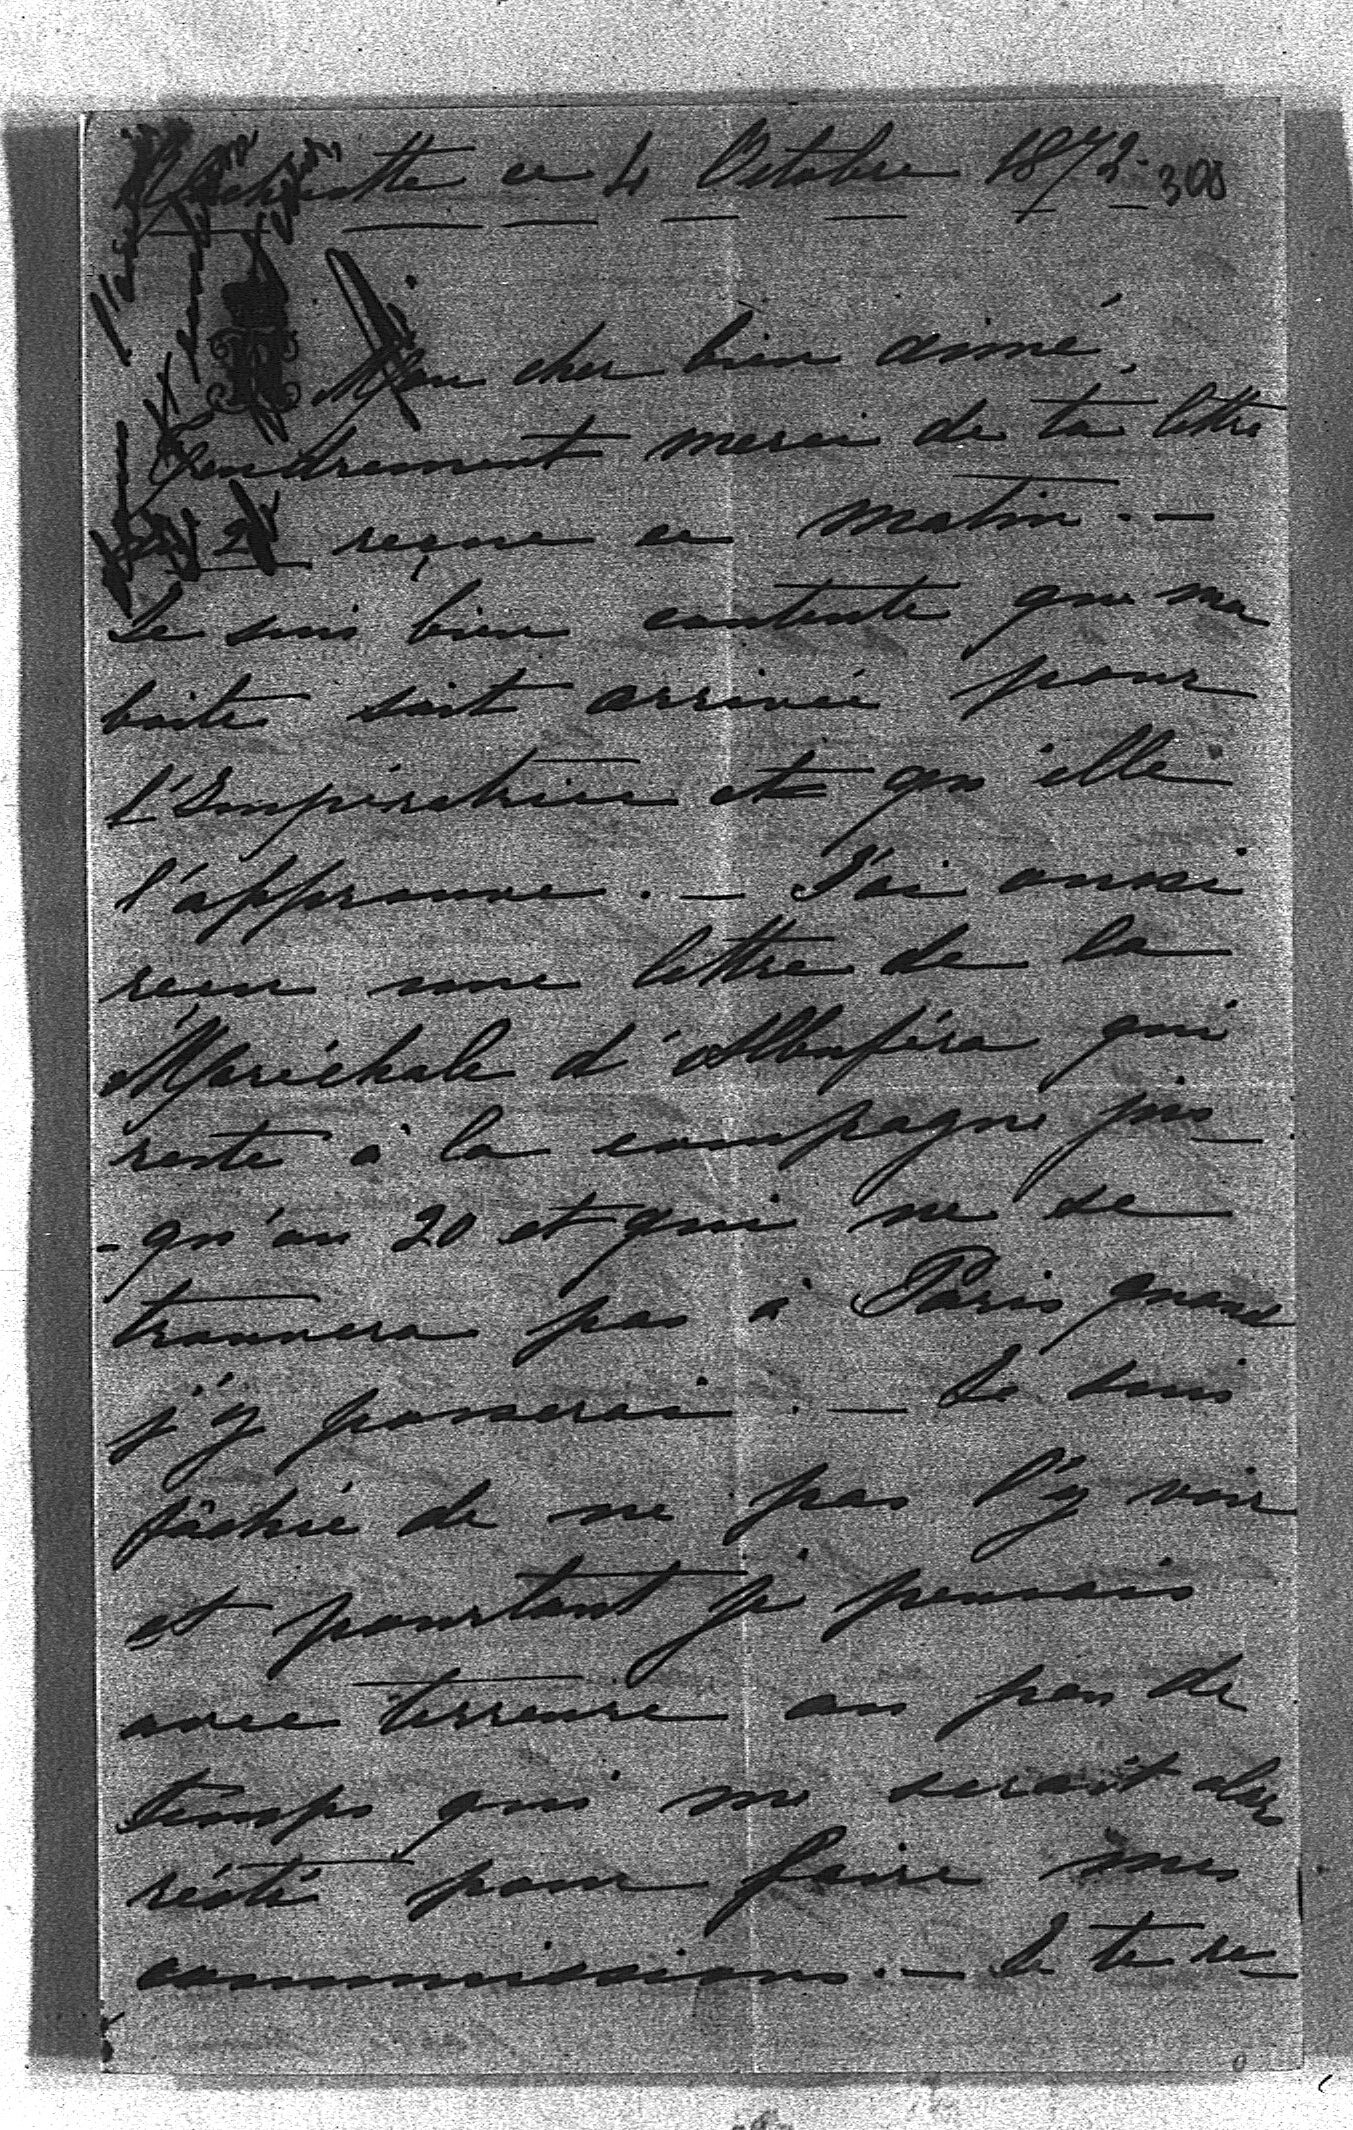 ce 4 Octobre 1872. 308
Mon cher bien aimé,
Tendrement merci de ta lettre
du 2 reçue ce matin. —
Je suis bien contente que ma
boite soit arrivée pour
l'Impératrice et qu'elle
l'approuve. — J'ai aussi
reçu une lettre de la
Maréchale d'Albuféra qui
reste à la campagne jus-
-qu'au 20 et qui ne se
trouvera pas à Paris quand
j'y passerai. — Je suis
fâchée de ne pas l'y voir
et pourtant je pensais
avec terreure au peu de
temps qui me serait alors
résté pour faire mes
commissions. — Je te re-